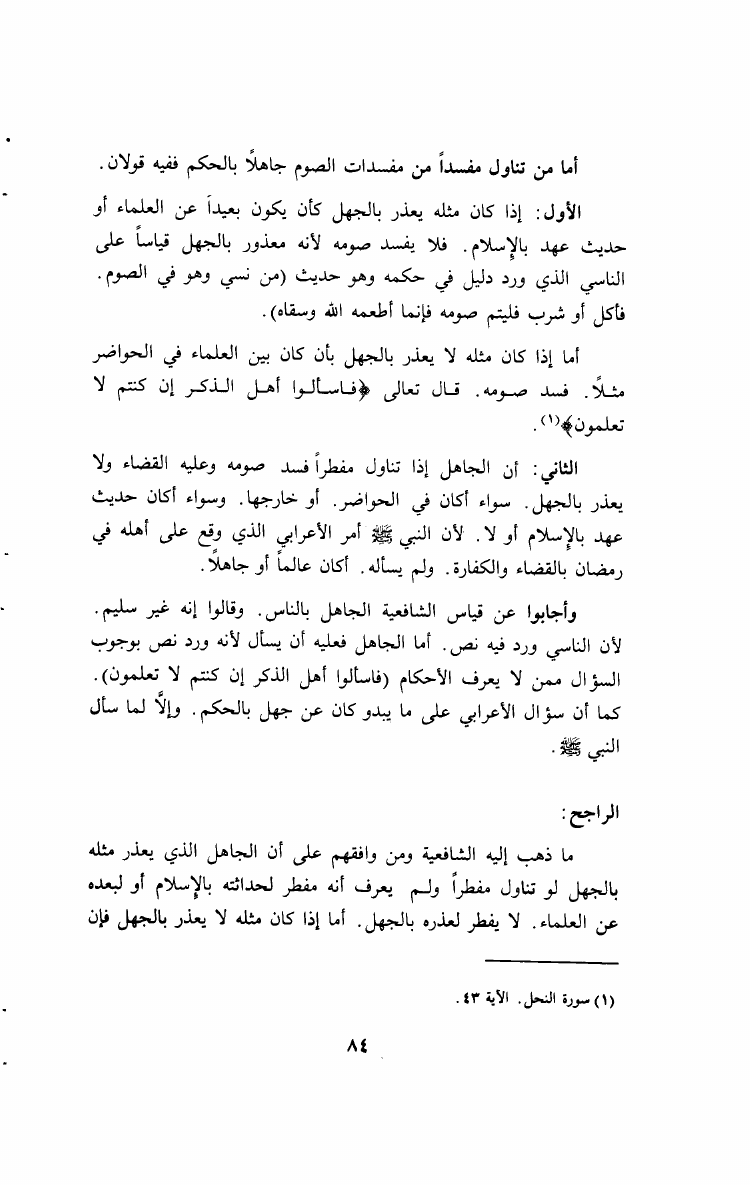 أما من تناول مفسداً من مفسدات الصوم جاهلاً بالحكم ففيه قولان.
الأول: إذا كان مثله يعذر بالجهل كأن يكون بعيداً عن العلماء أو
حديث عهد بالإسلام. فلا يفسد صومه لأنه معذور بالجهل قياساً على
الناسي الذي ورد دليل في حكمه وهو حديث (من نسي وهو في الصوم.
فأكل أو شرب فليتم صومه فإنما أطعمه الله وسقاه).
أما إذا كان مثله لا يعذر بالجهل بأن كان بين العلماء في الحواضر
مثلاً. فسد صومه. قال تعالى ﴿فاسألوا أهل الذكر إن كنتم لا
تعلمون﴾(١).
الثاني: أن الجاهل إذا تناول مفطراً فسد صومه وعليه القضاء ولا
يعذر بالجهل. سواء أكان في الحواضر. أو خارجها. وسواء أكان حديث
عهد بالإسلام أو لا. لأن النبي ﷺ أمر الأعرابي الذي وقع على أهله في
رمضان بالقضاء والكفارة. ولم يسأله. أكان عالماً أو جاهلاً.
وأجابوا عن قياس الشافعية الجاهل بالناس. وقالوا إنه غير سليم.
لأن الناسي ورد فيه نص. أما الجاهل فعليه أن يسأل لأنه ورد نص بوجوب
السؤال ممن لا يعرف الأحكام (فاسألوا أهل الذكر إن كنتم لا تعلمون).
كما أن سؤال الأعرابي على ما يبدو كان عن جهل بالحكم. وإلاَّ لما سأل
النبي ﷺ.
الراجح:
ما ذهب إليه الشافعية ومن وافقهم على أن الجاهل الذي يعذر مثله
بالجهل لو تناول مفطراً ولم يعرف أنه مفطر لحداثته بالإسلام أو لبعده
عن العلماء. لا يفطر لعذره بالجهل. أما إذا كان مثله لا يعذر بالجهل فإن
(١) سورة النحل. الآية ٤٣.
٨٤